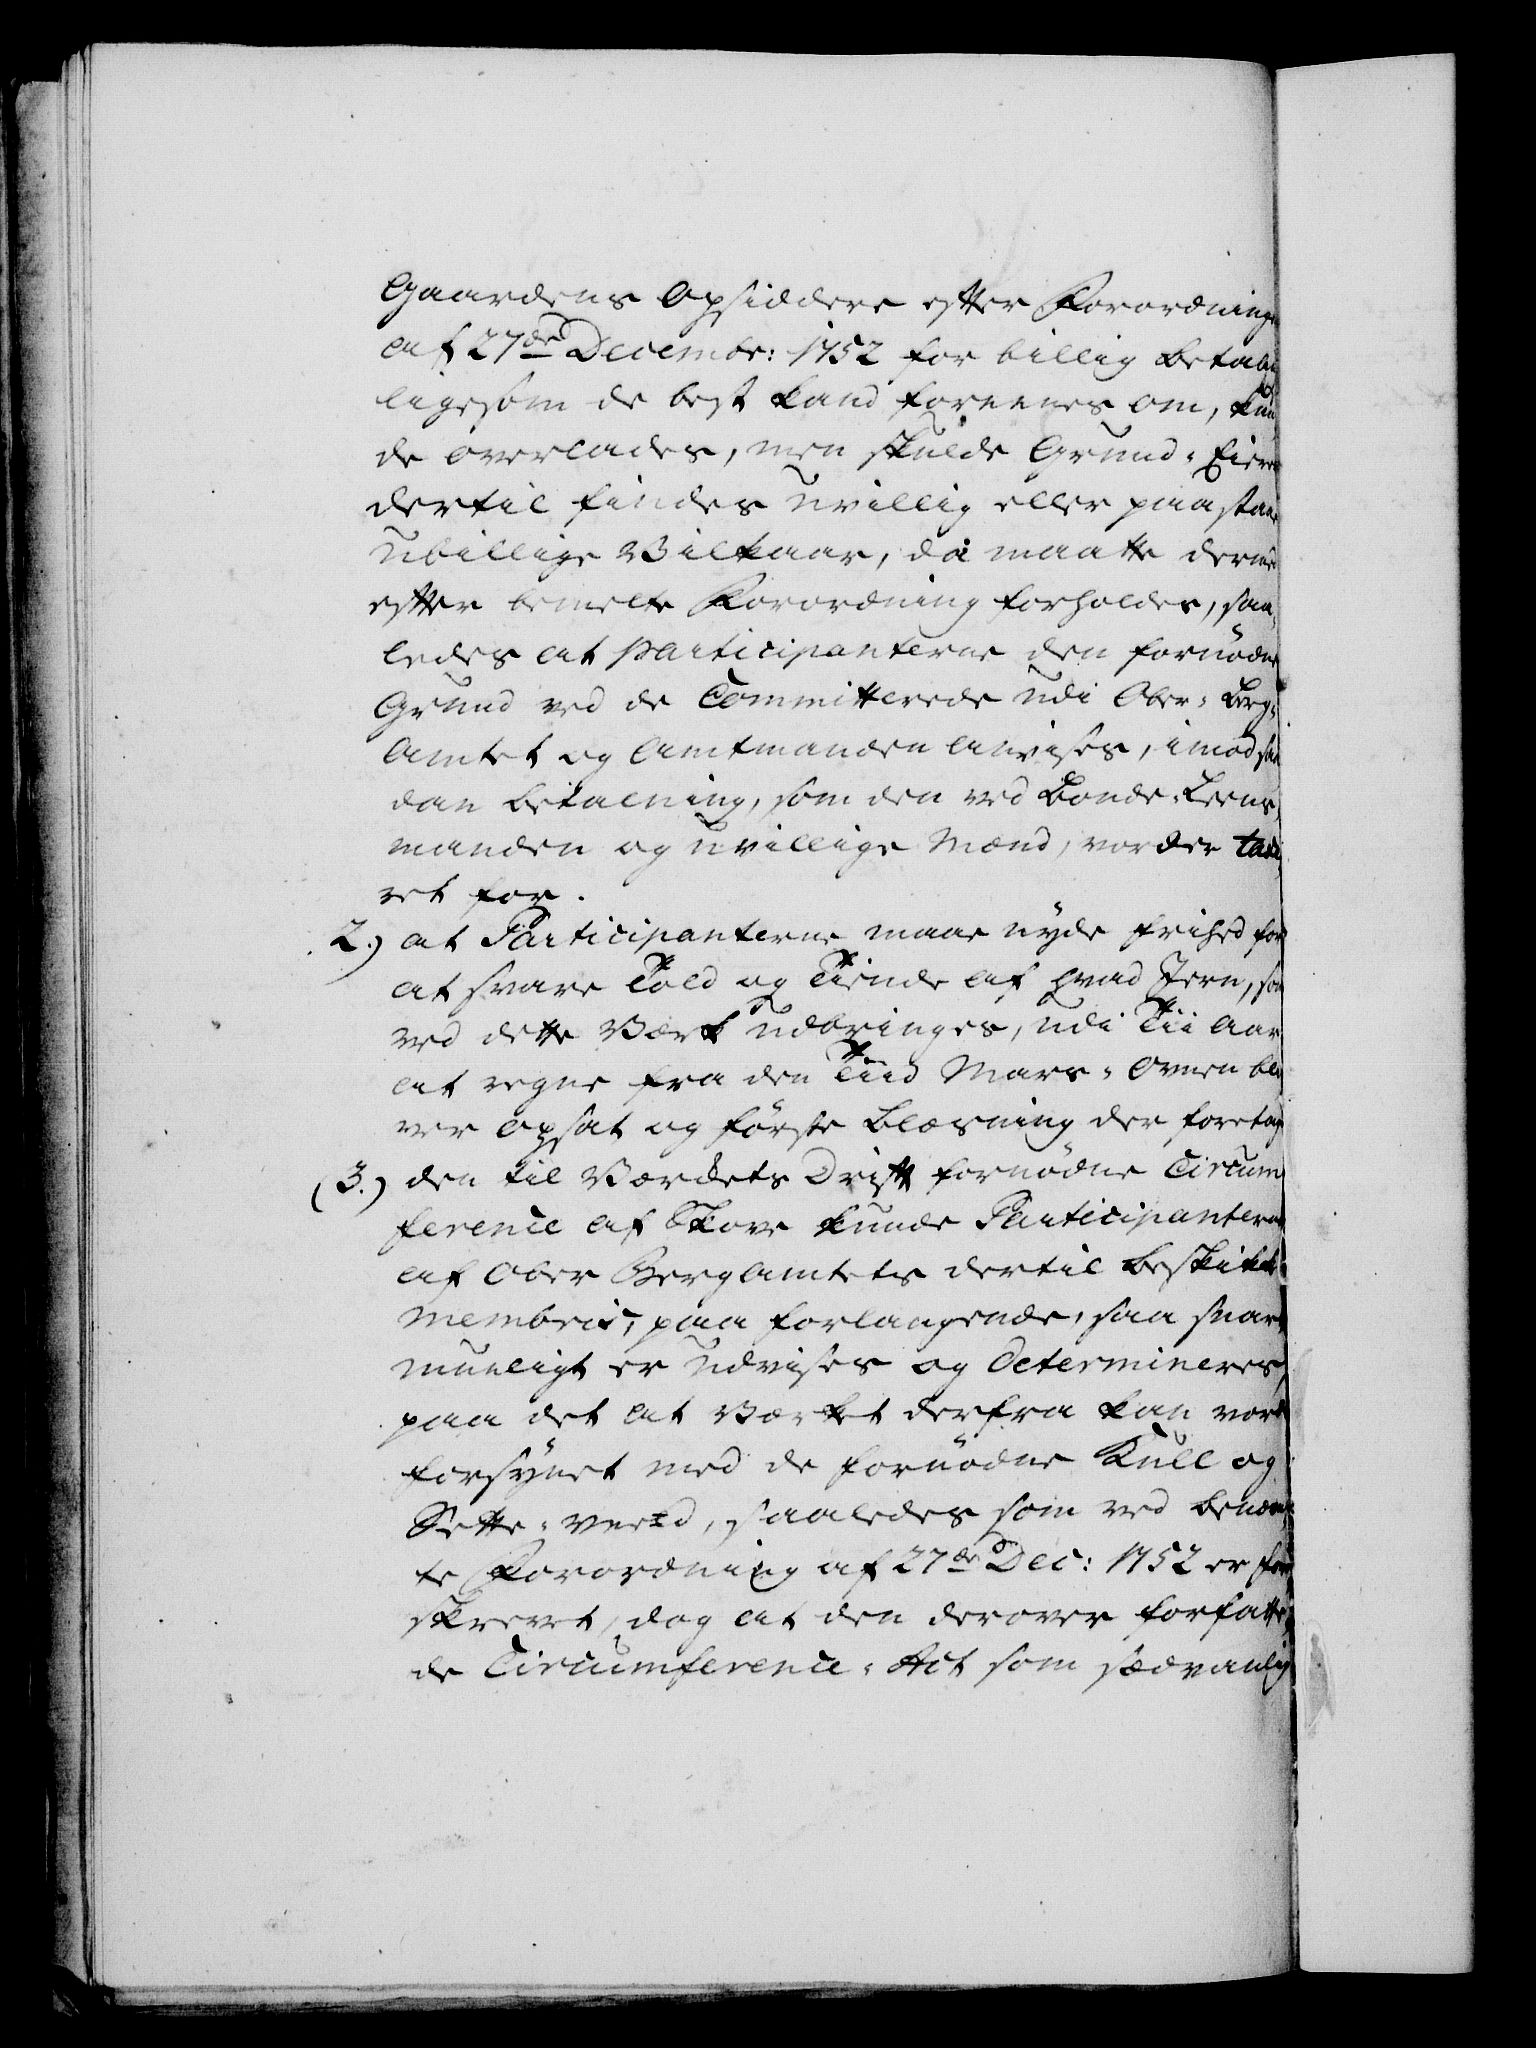 Gaardens Opsiddere efter Forordningen
af 27de Decembr: 1752 for billig betaln
ligesom de best kand foreenes om, kun
de overlades, men skulde Grund-Eieren
dertil findes uvillig eller paastaae
ubillige Vilkaar, da maatte dermed
efter bemelte Forordning forholdes, saa-
ledes at Participanterne den fornødne
Grund ved de Committerede udi Ober-Berg-
Amtet og Amtmanden anvises, imod saa
dan betalning, som den ved Bonde-Leens-
manden og uvillige Mænd, vorder taxe-
ret for.
2.) at Participanterne maae nyde frihed for
at svare Told og Tiende af hvad Jern, som
ved dette Værk udbringes, udi Tii Aar
at regne fra den Tiid Mars-Ovnen bli
ver opsat og første blæsning der foretag
(3.) den til Værckets Drift fornødne Circum
ference af Skove kunde Participanterne
af Ober Bergamtets dertil beskikke
Membris, paa forlangende, saa snart
mueligt er udvises og determineres,
paa det at Værket derfra kan vorde
forsynet med de fornødne Kull og
Sette-veed, saaledes som ved benævn-
te Forordning af 27de Dec: 1752 er for
skrevet, dog at den derover forfatte-
de Circumference-Act som sædvanlig